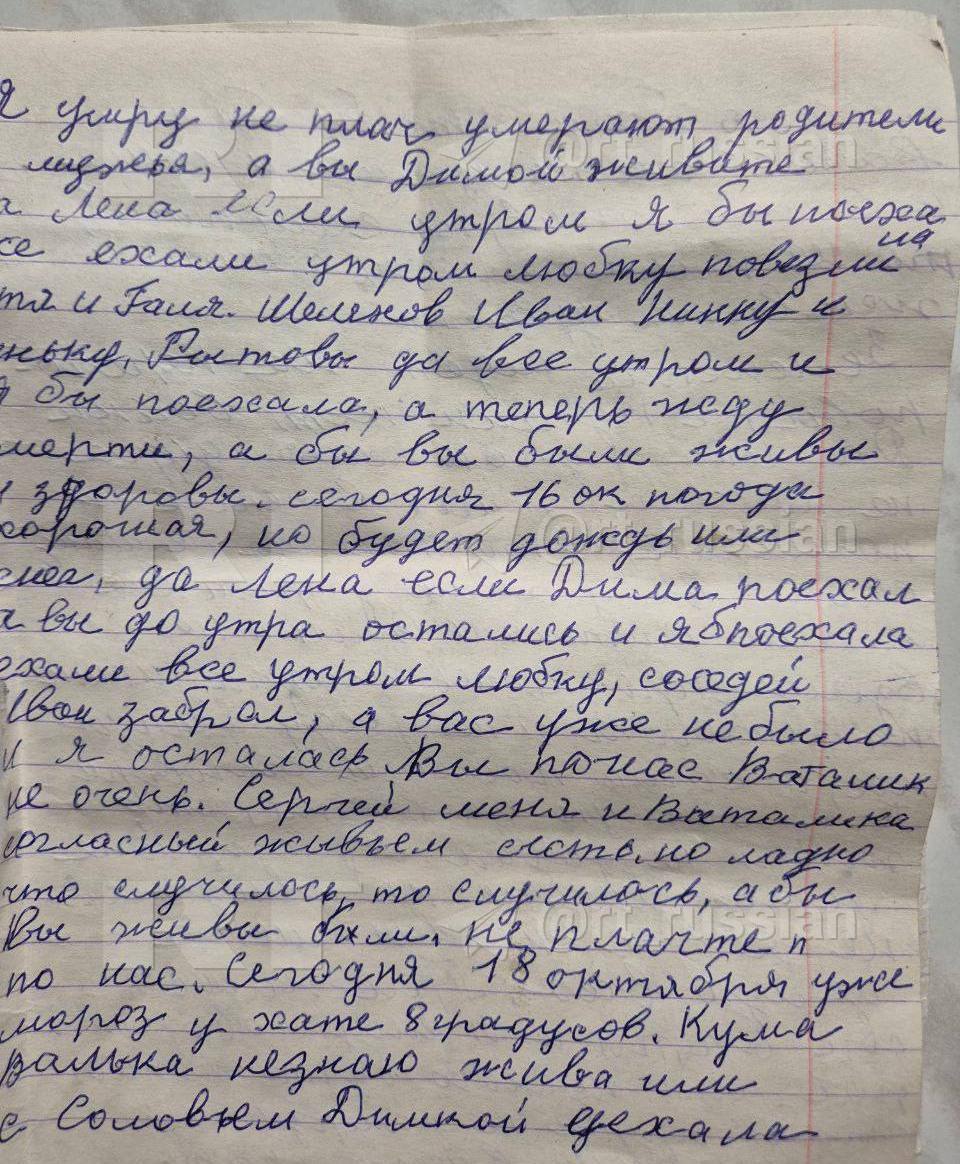 я умру не плач умерают родители
а вы Димой живите
а Лена если утром я бы поеха
се ехали утром любку повезли на
тя и Галя. Шеленов Иван Нинку и
ньку, да все утром и
я бы поехала, а теперь жду
мерти, а бы вы были живы
и здоровы. сегодня 16 ок погода
хорошая, но будет дождь или
снег, да Лена если Дима поехал
а вы до утра остались и я б поехала
ехали все утром любку, соседей
Иван забрал, а вас уже небыло
и я осталась Вы по нас Ваталик
не очень. Сергей меня и Ваталика
согласный живьем сесть, но ладно
что случилось, то случилось, абы
Вы живы были, не плачте п
по нас. Сегодня 18 октября уже
мороз у хате 8 градусов. Кума
валька незнаю жива или
с Соловьем Димкой уехала
@rt_russian
@rt_russian
@rt_russian